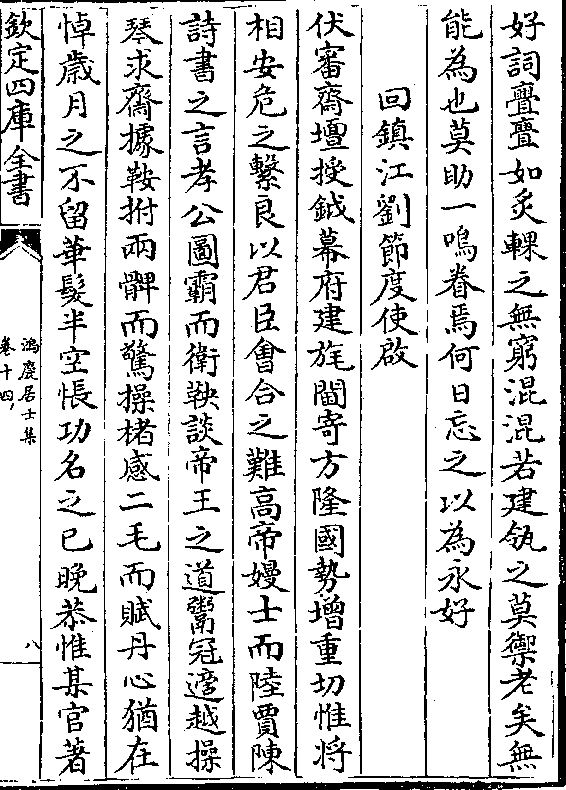 好詞亹亹如炙輠之無窮混混若建瓴之莫禦老矣無
能為也莫助一鳴眷焉何日忘之以為永好
回鎮江劉節度使啟
伏審齋壇授鉞幕府建旄閫寄方隆國勢增重切惟將
相安危之繫良以君臣㑹合之難高帝嫚士而陸賈陳
詩書之言孝公圖霸而衛鞅談帝王之道鬻冠適越操
琴求齋據鞍拊兩髀而驚操楮感二毛而賦丹心猶在
悼歲月之不留華髮半空悵功名之已晚恭惟某官著
欽定四庫全書
鴻慶居士集
卷十四
八